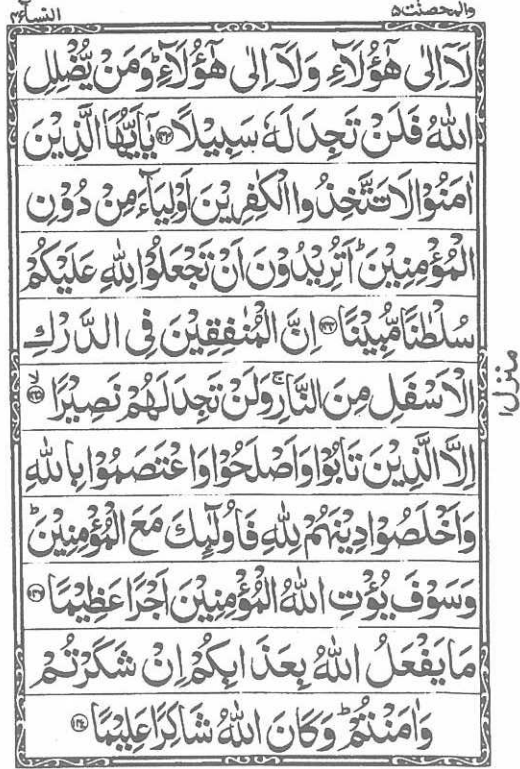 والمحصنت ۵
النساء ۴
لَاۤ اِلٰى هٰۤؤُلَآءِ وَلَاۤ اِلٰى هٰۤؤُلَآءِ ؕ وَمَنْ يُّضْلِلِ
اللّٰهُ فَلَنْ تَجِدَ لَهٗ سَبِيْلًا ﴿۱۴۳﴾ يٰۤاَيُّهَا الَّذِيْنَ
اٰمَنُوْا لَا تَتَّخِذُوا الْكٰفِرِيْنَ اَوْلِيَآءَ مِنْ دُوْنِ
الْمُؤْمِنِيْنَ ؕ اَتُرِيْدُوْنَ اَنْ تَجْعَلُوْا لِلّٰهِ عَلَيْكُمْ
سُلْطٰنًا مُّبِيْنًا ﴿۱۴۴﴾ اِنَّ الْمُنٰفِقِيْنَ فِى الدَّرْكِ
الْاَسْفَلِ مِنَ النَّارِ ۚ وَلَنْ تَجِدَ لَهُمْ نَصِيْرًا ۙ﴿۱۴۵﴾
اِلَّا الَّذِيْنَ تَابُوْا وَاَصْلَحُوْا وَاعْتَصَمُوْا بِاللّٰهِ
وَاَخْلَصُوْا دِيْنَهُمْ لِلّٰهِ فَاُولٰٓئِكَ مَعَ الْمُؤْمِنِيْنَ ؕ
وَسَوْفَ يُؤْتِ اللّٰهُ الْمُؤْمِنِيْنَ اَجْرًا عَظِيْمًا ﴿۱۴۶﴾
مَا يَفْعَلُ اللّٰهُ بِعَذَابِكُمْ اِنْ شَكَرْتُمْ
وَاٰمَنْتُمْ ؕ وَكَانَ اللّٰهُ شَاكِرًا عَلِيْمًا ﴿۱۴۷﴾
منزل ۱